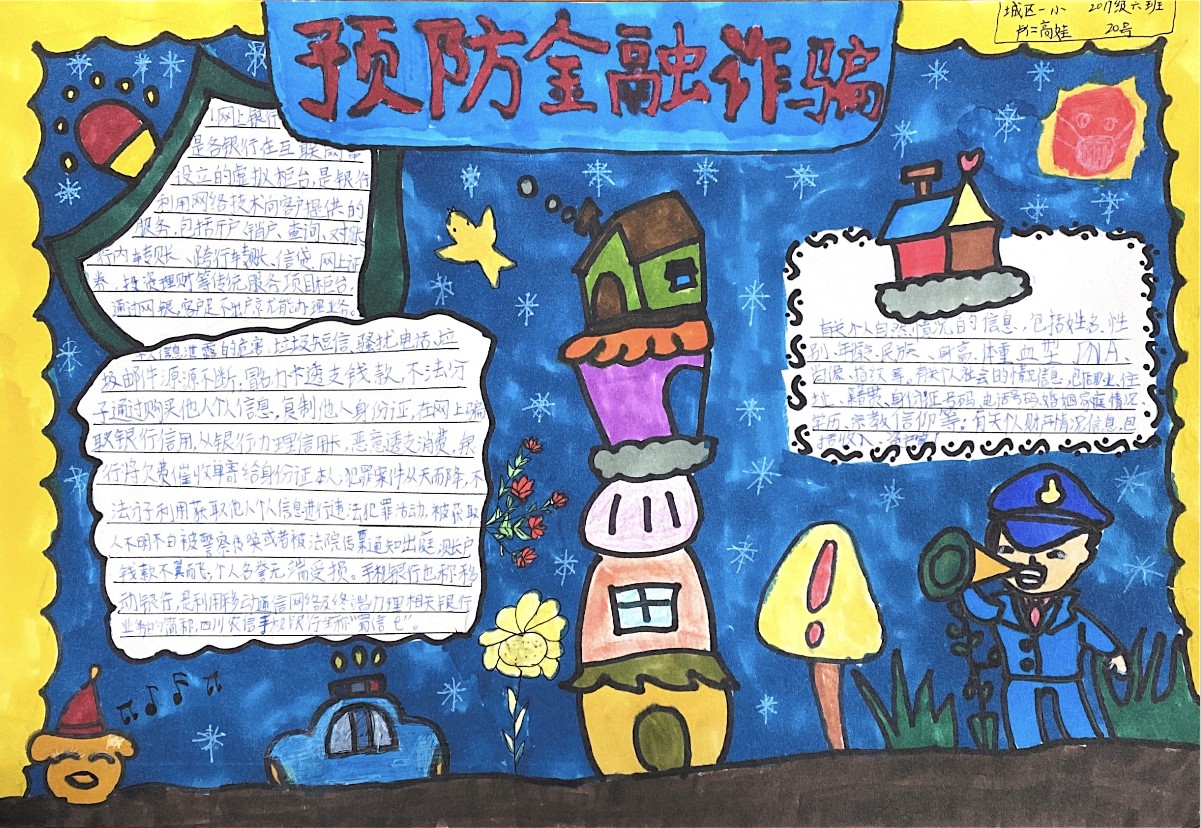 预防金融诈骗
城区一小 2017级六班
20号
1网上银行
是各银行在互联网
设立的虚拟柜台,是银行
利用网络技术向客户提供的
服务,包括开户、销户、查询、对账
行内转账、跨行转账、信贷、网上证
券、投资理财等传统服务项目柜台.
通过网银,客户足不出户就能办理业务。
信息泄露的危害:垃圾短信、骚扰电话、垃
圾邮件源源不断;卡透支钱款,不法分
子通过购买他人个人信息,复制他人身份证,在网上骗
取银行信用,从银行办理信用卡,恶意透支消费,银
行将欠费催收单寄给身份证本人,犯罪案件从天而降,不
法分子利用获取他人个人信息进行违法犯罪活动,被获取
人不明不白被警察传唤或者被法院传票通知出庭,账户
钱款不翼而飞;个人名誉无端受损。手机银行也称移
动银行,是利用移动通信网络及终端办理相关银行
业务的简称,四川农信手机银行全称“蜀信e”。
有关个人自然情况的信息,包括姓名、性
别、年龄、民族、身高、体重、血型、DNA、
肖像、指纹等。有关个人社会的情况信息,包括职业、住
址、身份证号码、电话号码、婚姻家庭情况、
学历、宗教信仰等;有关个人财产情况信息,包
括收入、